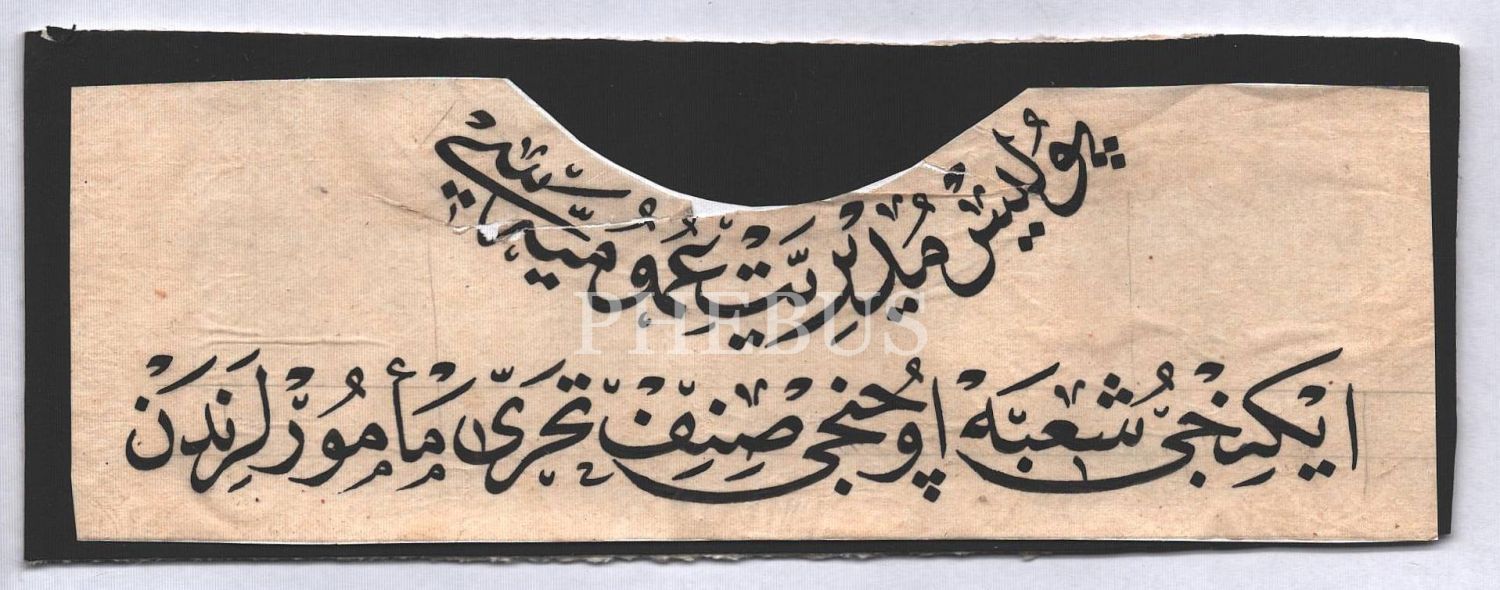 پولیس مدیریت عمومیه سی
ایكنجی شعبه اوچنجی صنف تحری مأمورلرندن
PHEBUS